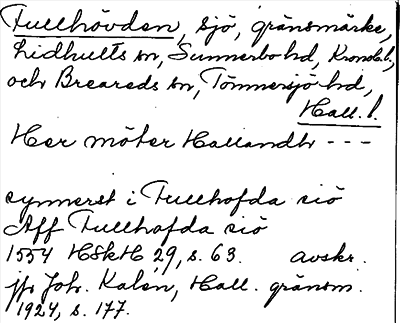 Fullhövden, sjö, gränsmärke,
Lidhults sn, Sunnerbo hd, Kronob. l.,
och Breareds sn, Tönnersjö hd,
Hall. l.
Her möter Hallandh ---
synnerst i Fullhofda siö
Aff Fullhofda siö
1554 HSkH 29, s. 63. avskr.
jfr Joh. Kalén, Hall. gränsm.
1924, s. 177.